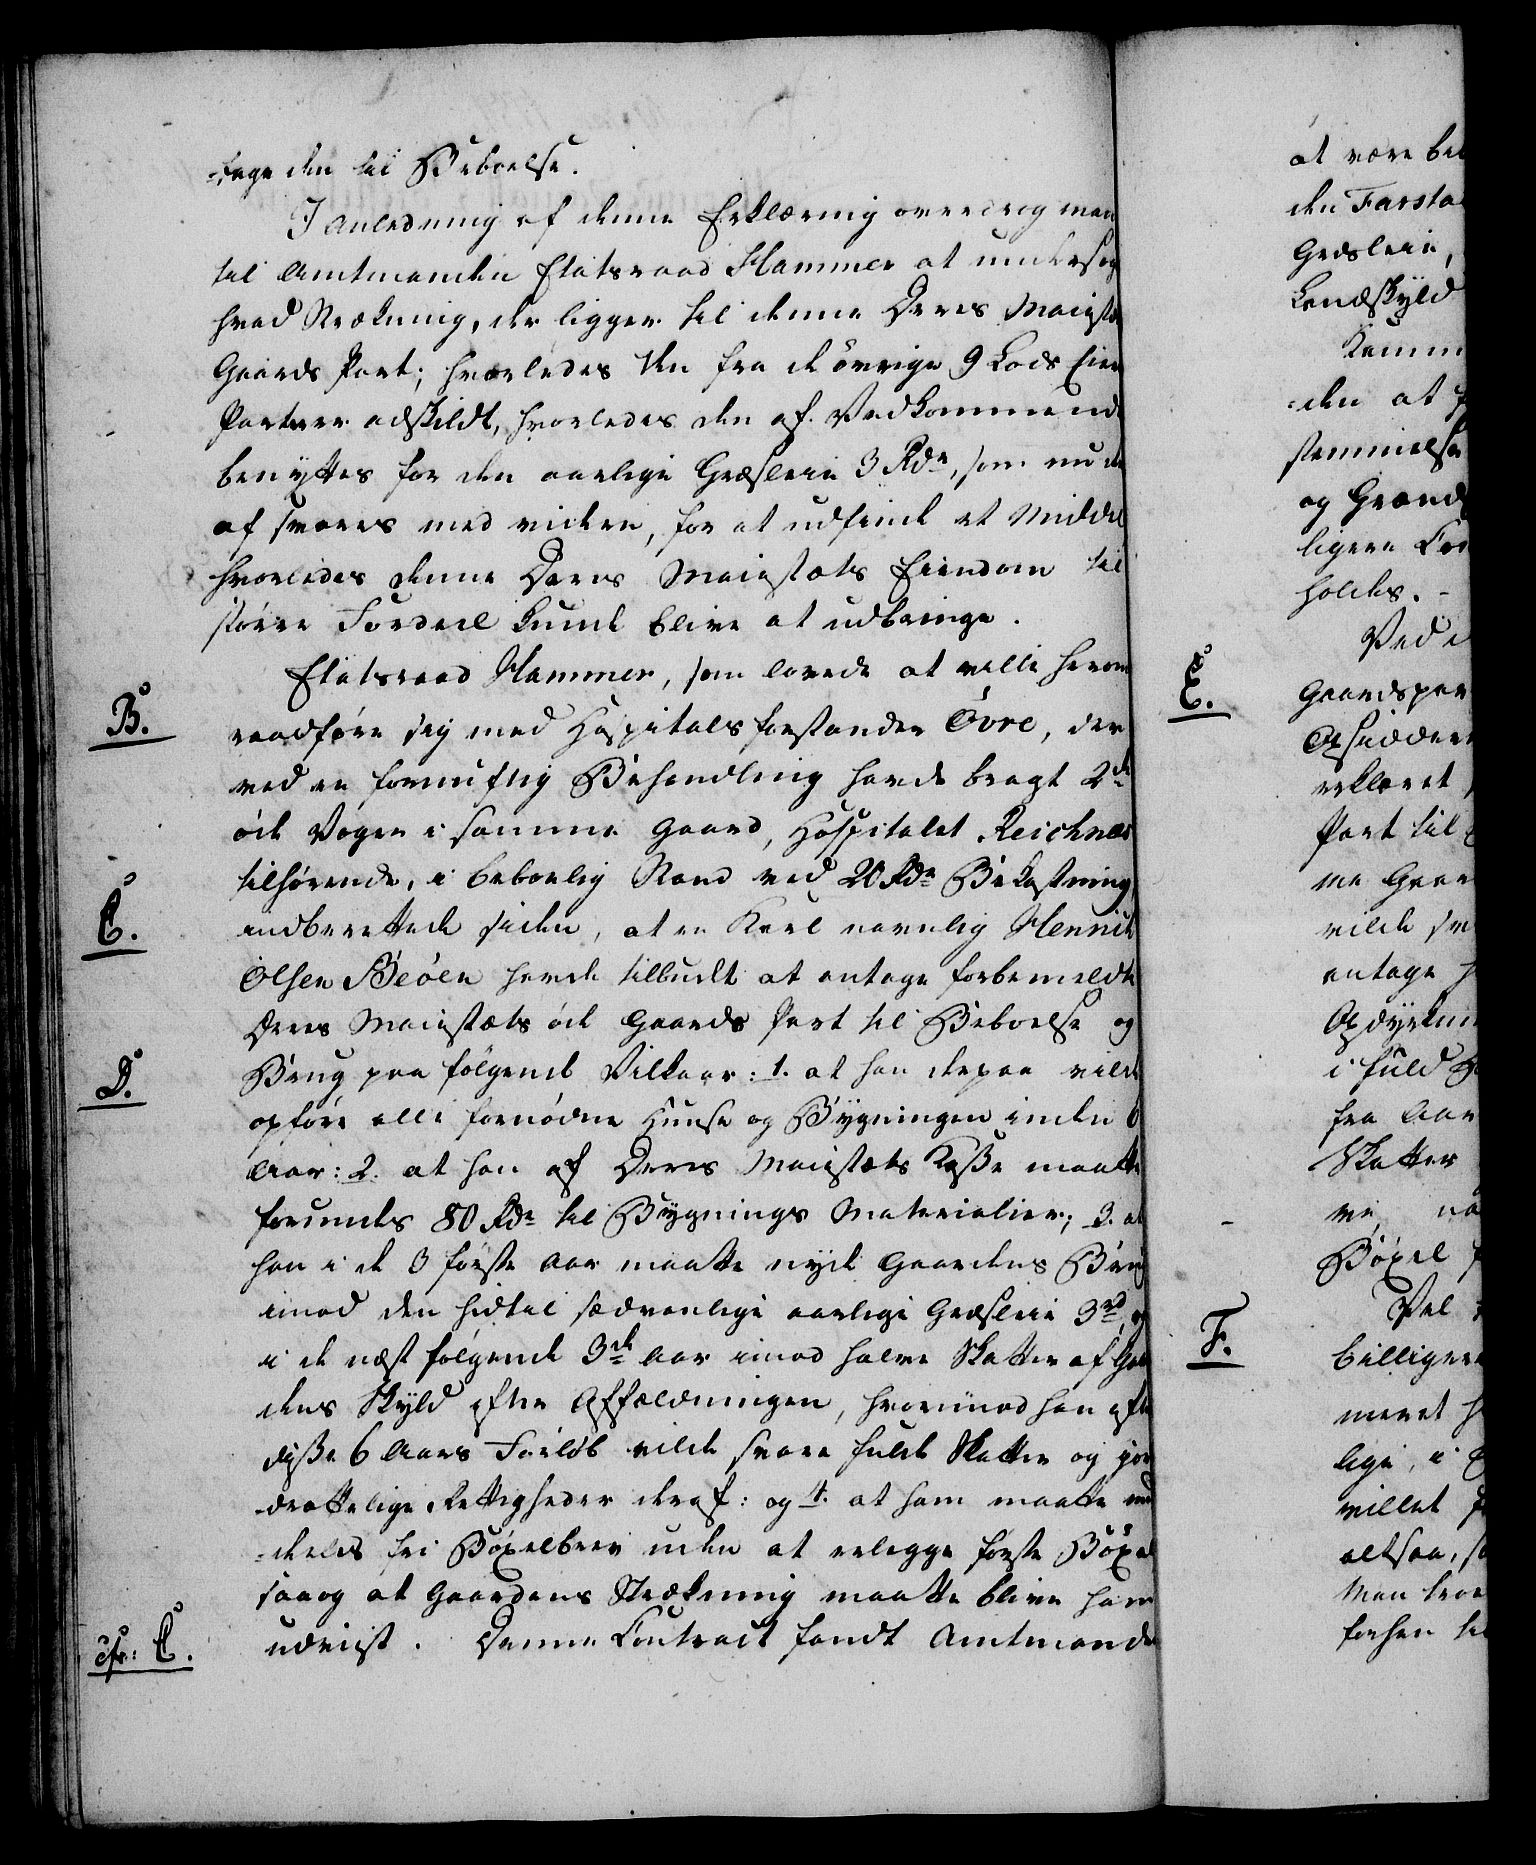 -tage den til Beboelse.
I Anledning af denne Erklæring overdrog man
til Amtmanden Etatsraad Hammer at undersøg
hvad Strækning, der ligger til denne Deres Maiestæ
Gaards Part; hvorledes den fra de øvrige 9 Lods Eier
Parterer adskildt, hvorledes den af Vedkommende
benyttes for den aarlige Græsleie 3 Rdr, som nu de
af svares med videre, for at udfinde et Middel
hvorledes denne Deres Maiestæts Eiendom til
større Fordeel kunde blive at udbringe.
B.
Etatsraad Hammer, som lovede at ville herom
raadføre sig med Hospitalsforstander Øvre, der
ved en fornuftig Behandling havde bragt 2de
øde Voger i samme Gaard, Hospitalet Reichnæs
tilhørende, i beboelig Stand ved 20 Rdr Bekostning
C.
indberettede siden, at en Karl navnlig Henrick
Olsen Beöen havde tilbudt at antage forbemeldte
Deres Maiestæts øde Gaards Part til Beboelse og
D.
Brug paa følgende Vilkaar: 1. at han derpaa vilde
opføre alle fornødne Huuse og Bygninger inden 6
Aar: 2. at han af Deres Maiestæts Kasse maatte
forundes 80 Rdr til Bygnings Materialier; 3. at
han i de 3 første Aar maatte nyde Gaardens Brug
imod den hidtil sædvanlige aarlige Græsleie 3rd, og
i de næst følgende 3de Aar imod halve Skatter af Gaar
dens Skyld efter Affældningen, hvorimod han efter
disse 6 Aars Forløb vilde svare fulde Skatter og jor
drottelige Rettigheder deraf: og 4. at ham maatte med
-deles fri Bøxelbrev uden at erlegge første Bøxel
saaog at Gaardens Strækning maatte blive ham
cfr: C.
udviist. Denne Contract fandt Amtmande
at være be
den Farsta
Græsleie,
Landskyld
-den at
stemmelse
og Grænd
ligere
holdes. -
E.
Ved
Gaardspar
Opsidder
erklæret
Part til
me Gaar
vilde sv
antage
Opdyrkni
i fuld
fra Aar
Skatter
Bøxel
F.
Vel
billiger
meret
lige, i
villet
altsaa, s
Man troe
forhen ti